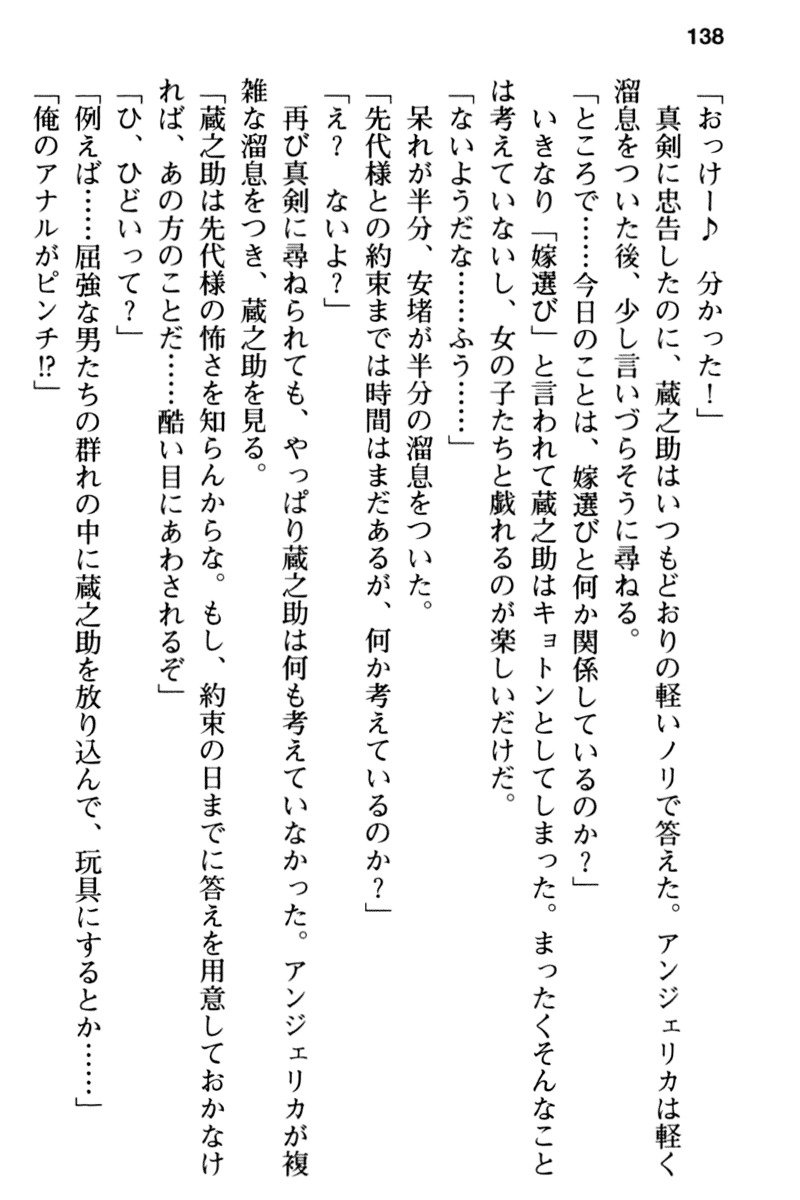 138
「おっけー♪　分かった！」
　真剣に忠告したのに、蔵之助はいつもどおりの軽いノリで答えた。アンジェリカは軽く
溜息をついた後、少し言いづらそうに尋ねる。
「ところで……今日のことは、嫁選びと何か関係しているのか？」
　いきなり「嫁選び」と言われて蔵之助はキョトンとしてしまった。まったくそんなこと
は考えていないし、女の子たちと戯れるのが楽しいだけだ。
「ないようだな……ふう……」
　呆れが半分、安堵が半分の溜息をついた。
「先代様との約束までは時間はまだあるが、何か考えているのか？」
「え？　ないよ？」
　再び真剣に尋ねられても、やっぱり蔵之助は何も考えていなかった。アンジェリカが複
雑な溜息をつき、蔵之助を見る。
「蔵之助は先代様の怖さを知らんからな。もし、約束の日までに答えを用意しておかなけ
れば、あの方のことだ……酷い目にあわされるぞ」
「ひ、ひどいって？」
「例えば……屈強な男たちの群れの中に蔵之助を放り込んで、玩具にするとか……」
「俺のアナルがピンチ!?」